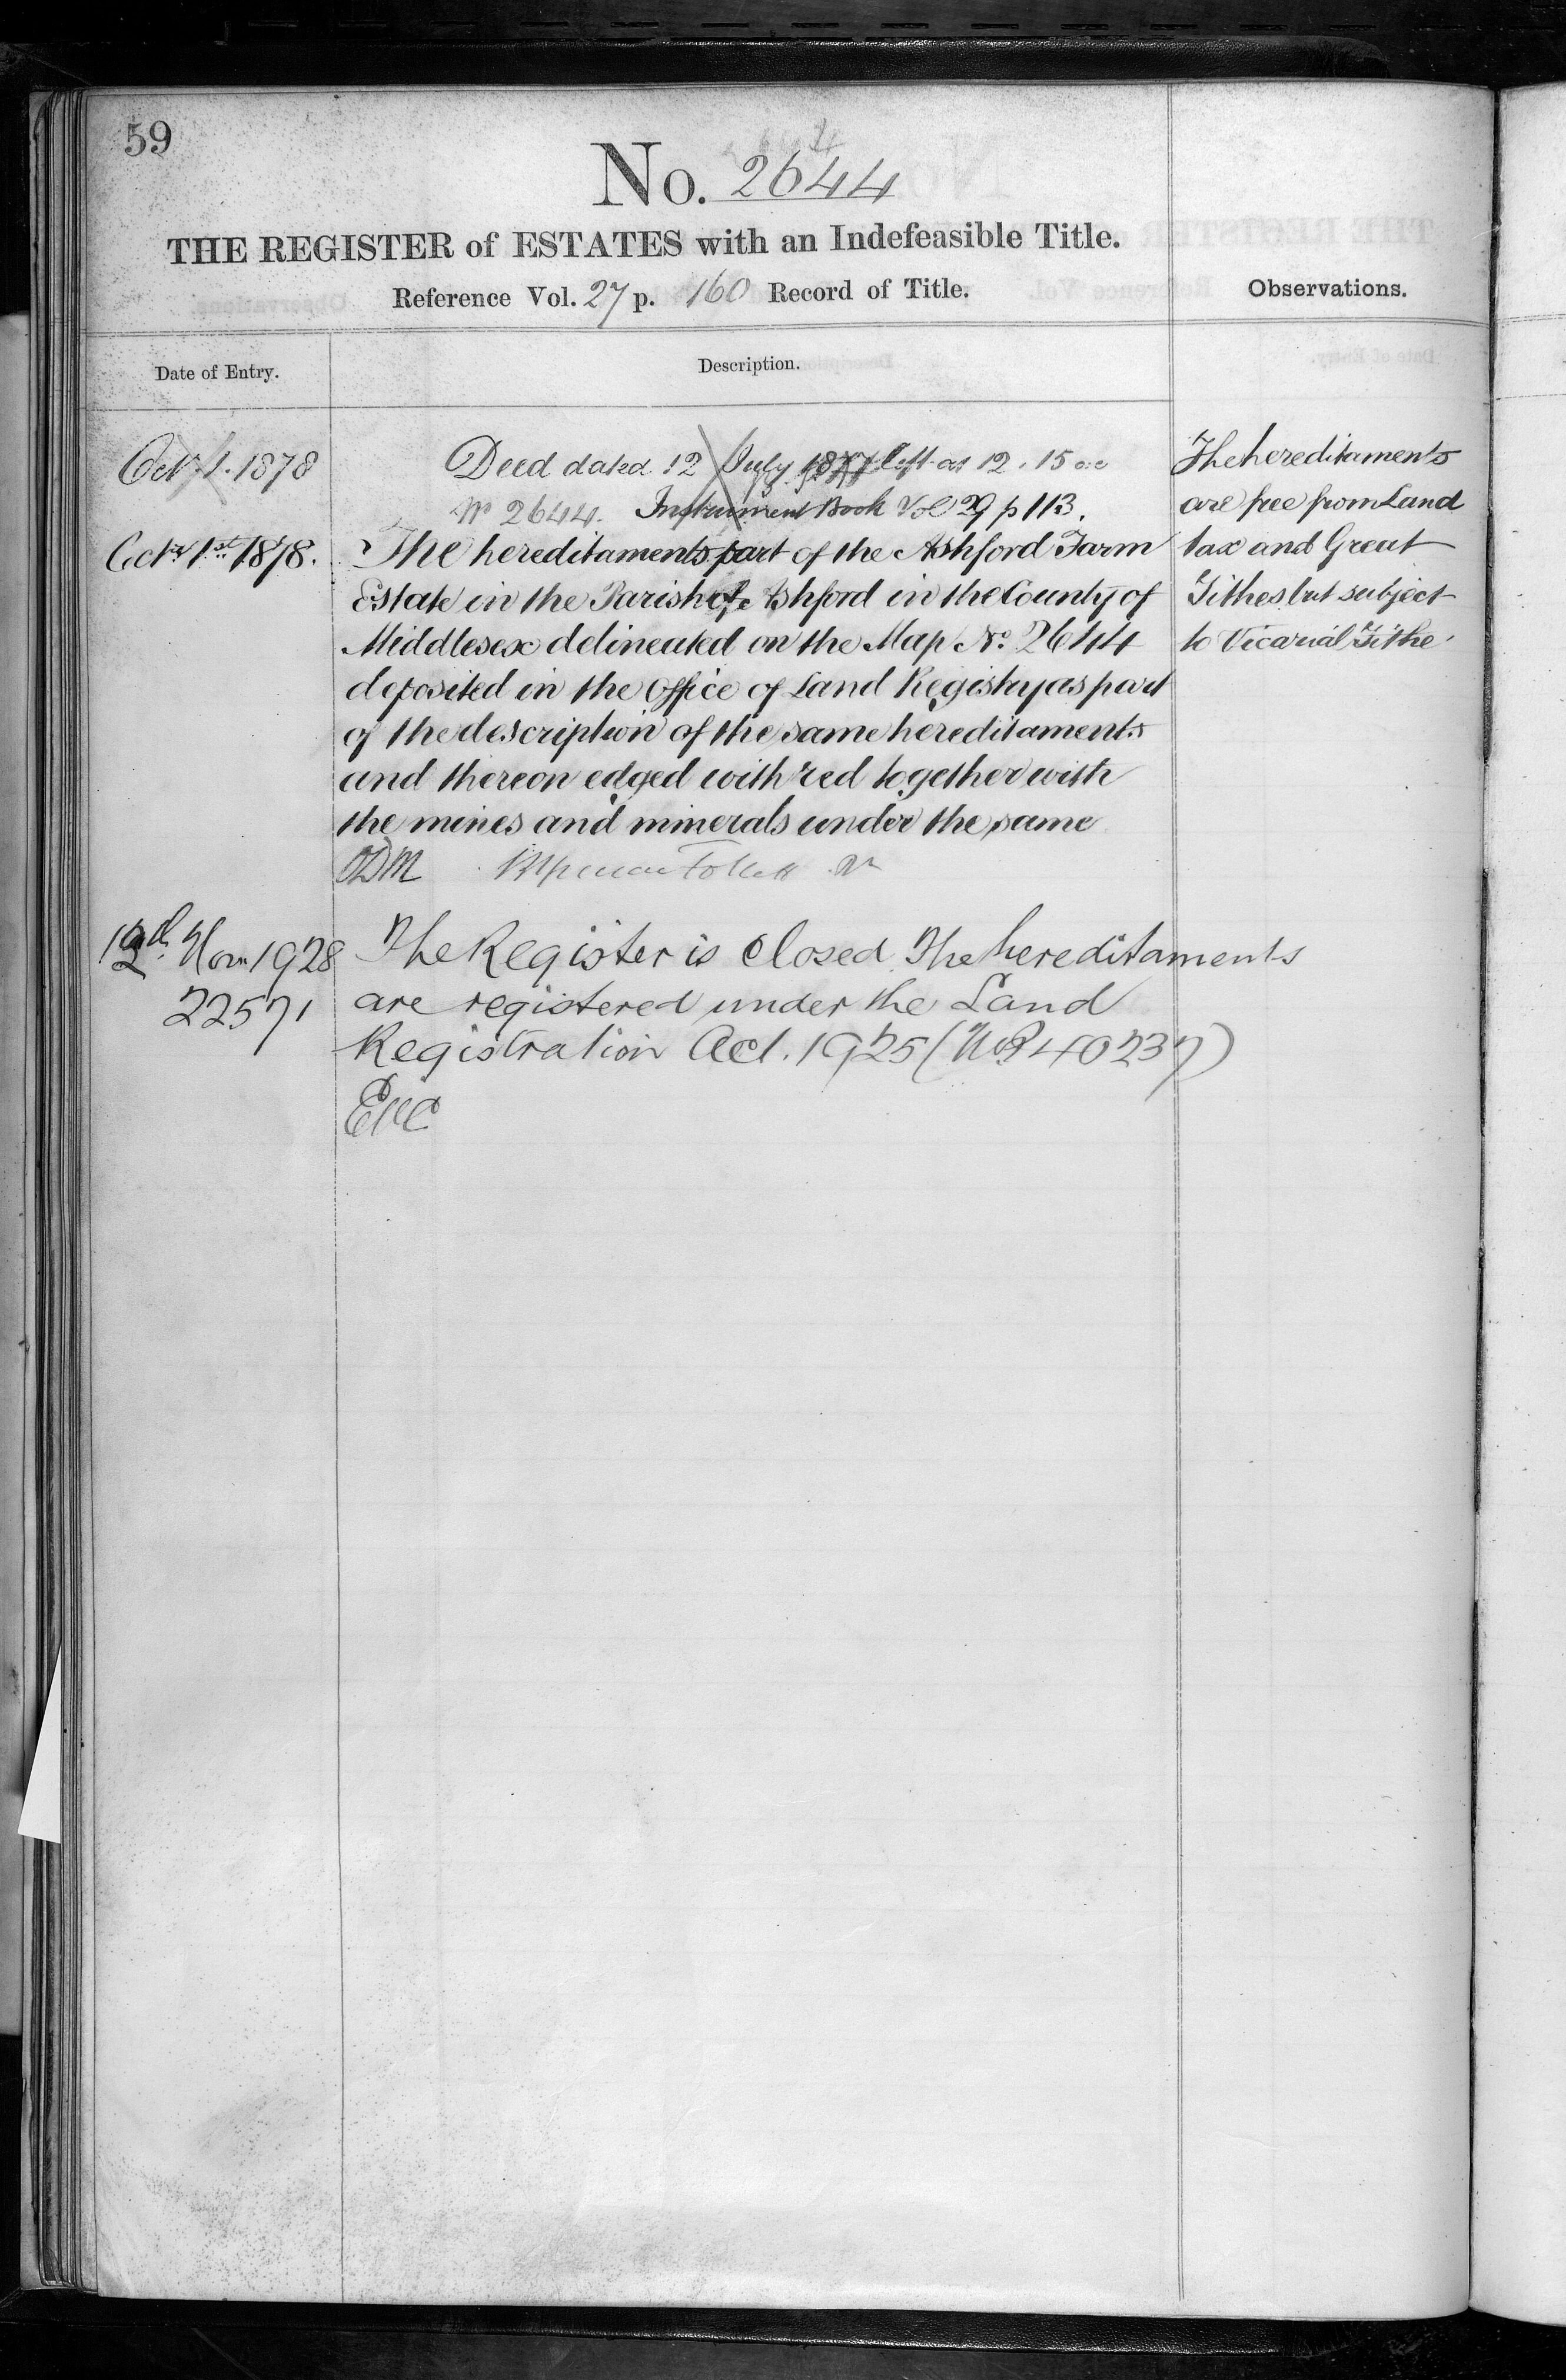 59
No. 2644
THE REGISTER of ESTATES with an Indefeasible Title.
Reference Vol. 27 p. 160 Record of Title.
Observations.
Date of Entry.
Description.
Octr. 1. 1878
Deed dated 12 July left at 12.15
No 2644. Instrument Book Vol 29 p 113.
Octr 1st 1878.
The hereditaments part of the Ashford Farm
Estate in the Parish of Ashford in the County of
Middlesex delineated on the Map No. 2644
deposited in the Office of Land Registry as part
of the description of the same hereditaments
and thereon edged with red together with
the mines and minerals under the same
The hereditaments
are free from Land
tax and Great
Tithes but subject
to Vicarial Tithe.
1928
22571
The Register is closed. The hereditaments
are registered under the Land
Registration Act. 1925 (40237)